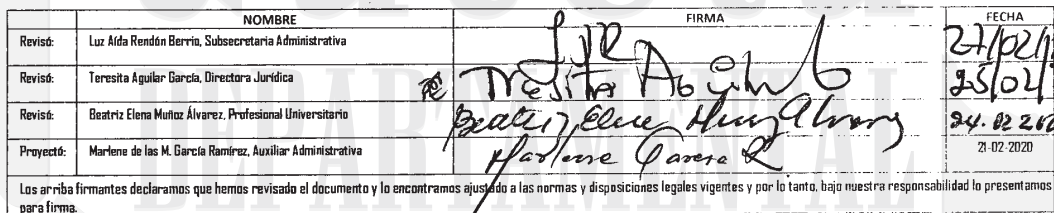 NOMBRE FIRMA FECHA
Revisó: Luz Aída Rendón Berrio, Subsecretaria Administrativa 27/02/
Revisó: Teresita Aguilar García, Directora Jurídica Teresita Aguilar 25/02/
Revisó: Beatriz Elena Muñoz Álvarez, Profesional Universitario Beatriz Elena Muñoz Álvarez 24.02
Proyectó: Marlene de las M. García Ramírez, Auxiliar Administrativa Marlene García R 21-02-2020
Los arriba firmantes declaramos que hemos revisado el documento y lo encontramos ajustado a las normas y disposiciones legales vigentes y por lo tanto, bajo nuestra responsabilidad lo presentamos
para firma.
DEPARTAMENTAL